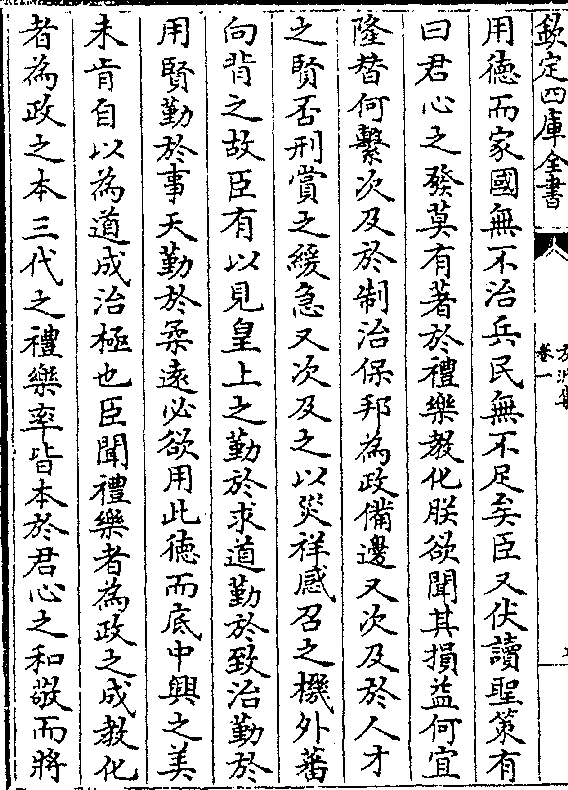 欽定四庫全書
卷一
用徳而家國無不治兵民無不足矣臣又伏讀聖策有
曰君心之發莫有著於禮樂教化朕欲聞其損益何宜
隆替何繫次及於制治保邦為政備邊又次及於人才
之賢否刑賞之緩急又次及之以災祥感召之機外蕃
向背之故臣有以見皇上之勤於求道勤於致治勤於
用賢勤於事天勤於柔遠必欲用此徳而底中興之美
未肯自以為道成治極也臣聞禮樂者為政之成教化
者為政之本三代之禮樂率皆本於君心之和敬而將